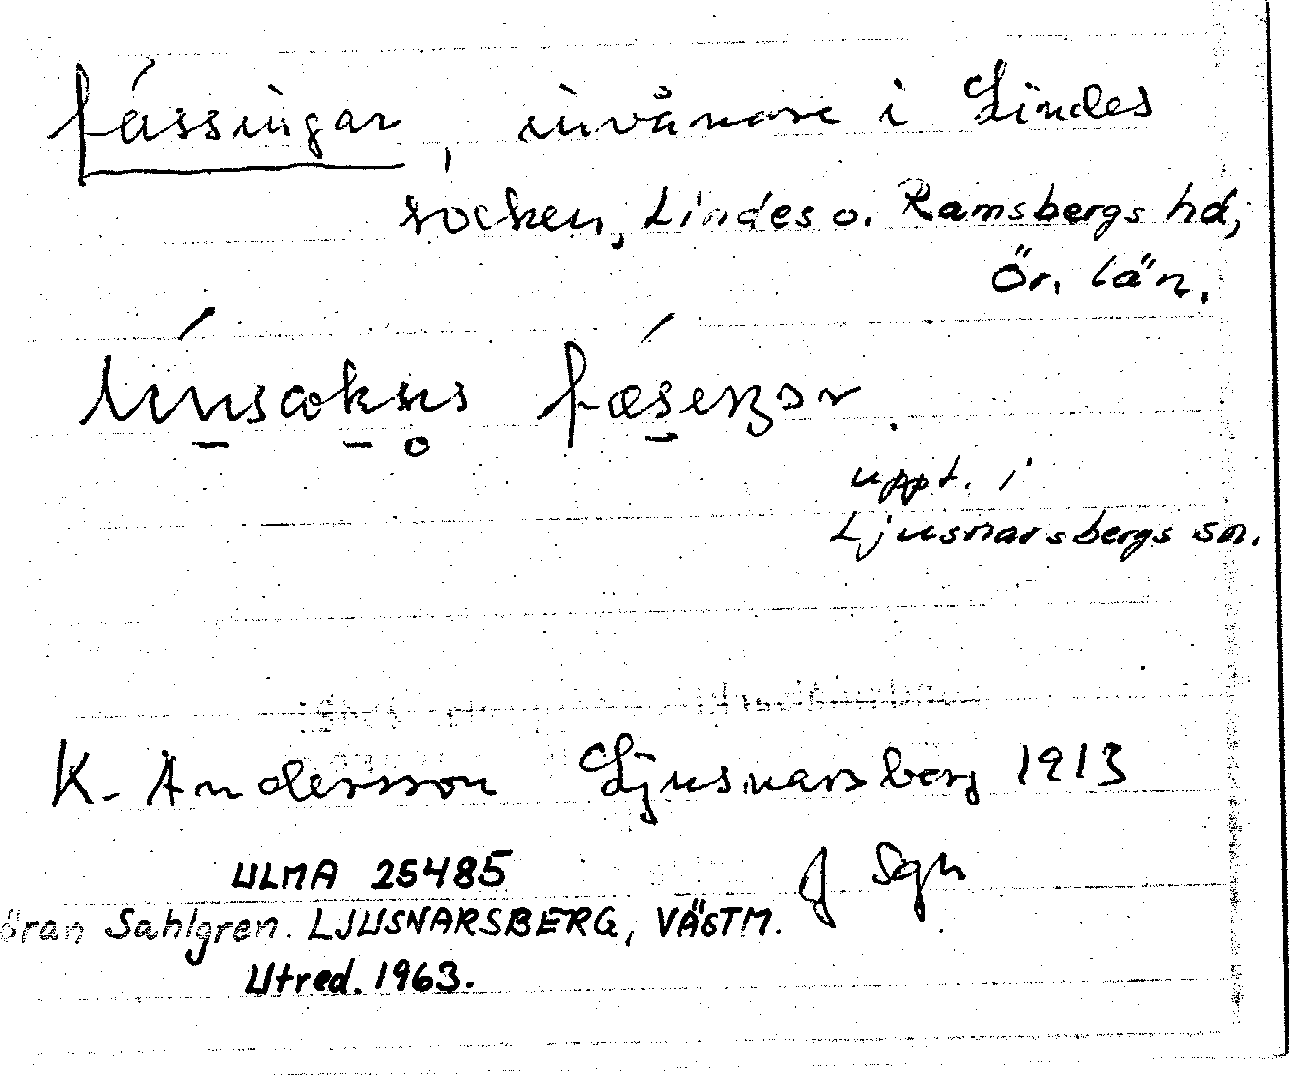 fässingar, invånare i Lindes
socken, Lindes o. Ramsbergs hd,
Ör. län.
uppt. i
Ljusnarsbergs sn.
K. Andersson Ljusnarsberg 1913
ULMA 25485 G Sgn
öran Sahlgren. LJUSNARSBERG, VÄSTM.
Utred. 1963.